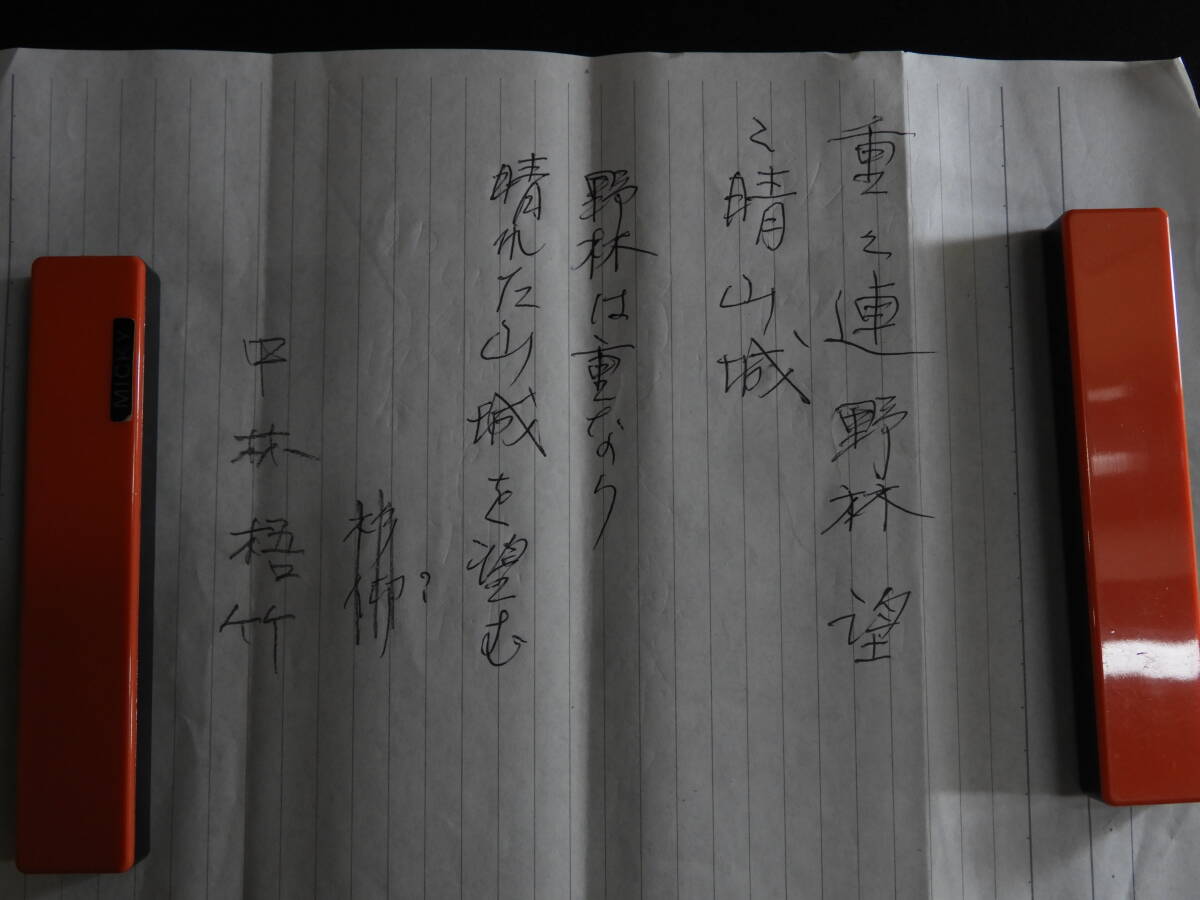 重々連野林望
々晴山城
野林は重なり
晴れた山城を望む
?
中林梧竹
MICKY